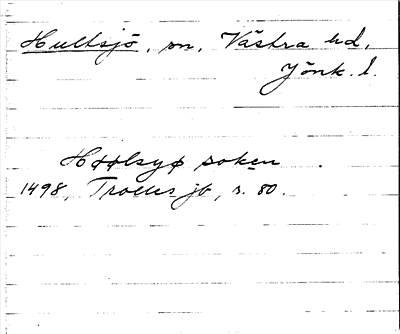 Hultsjö, sn, Västra hd,
Jönk. l.
Høølsyø soken
1498, Trolles jb, s. 80.